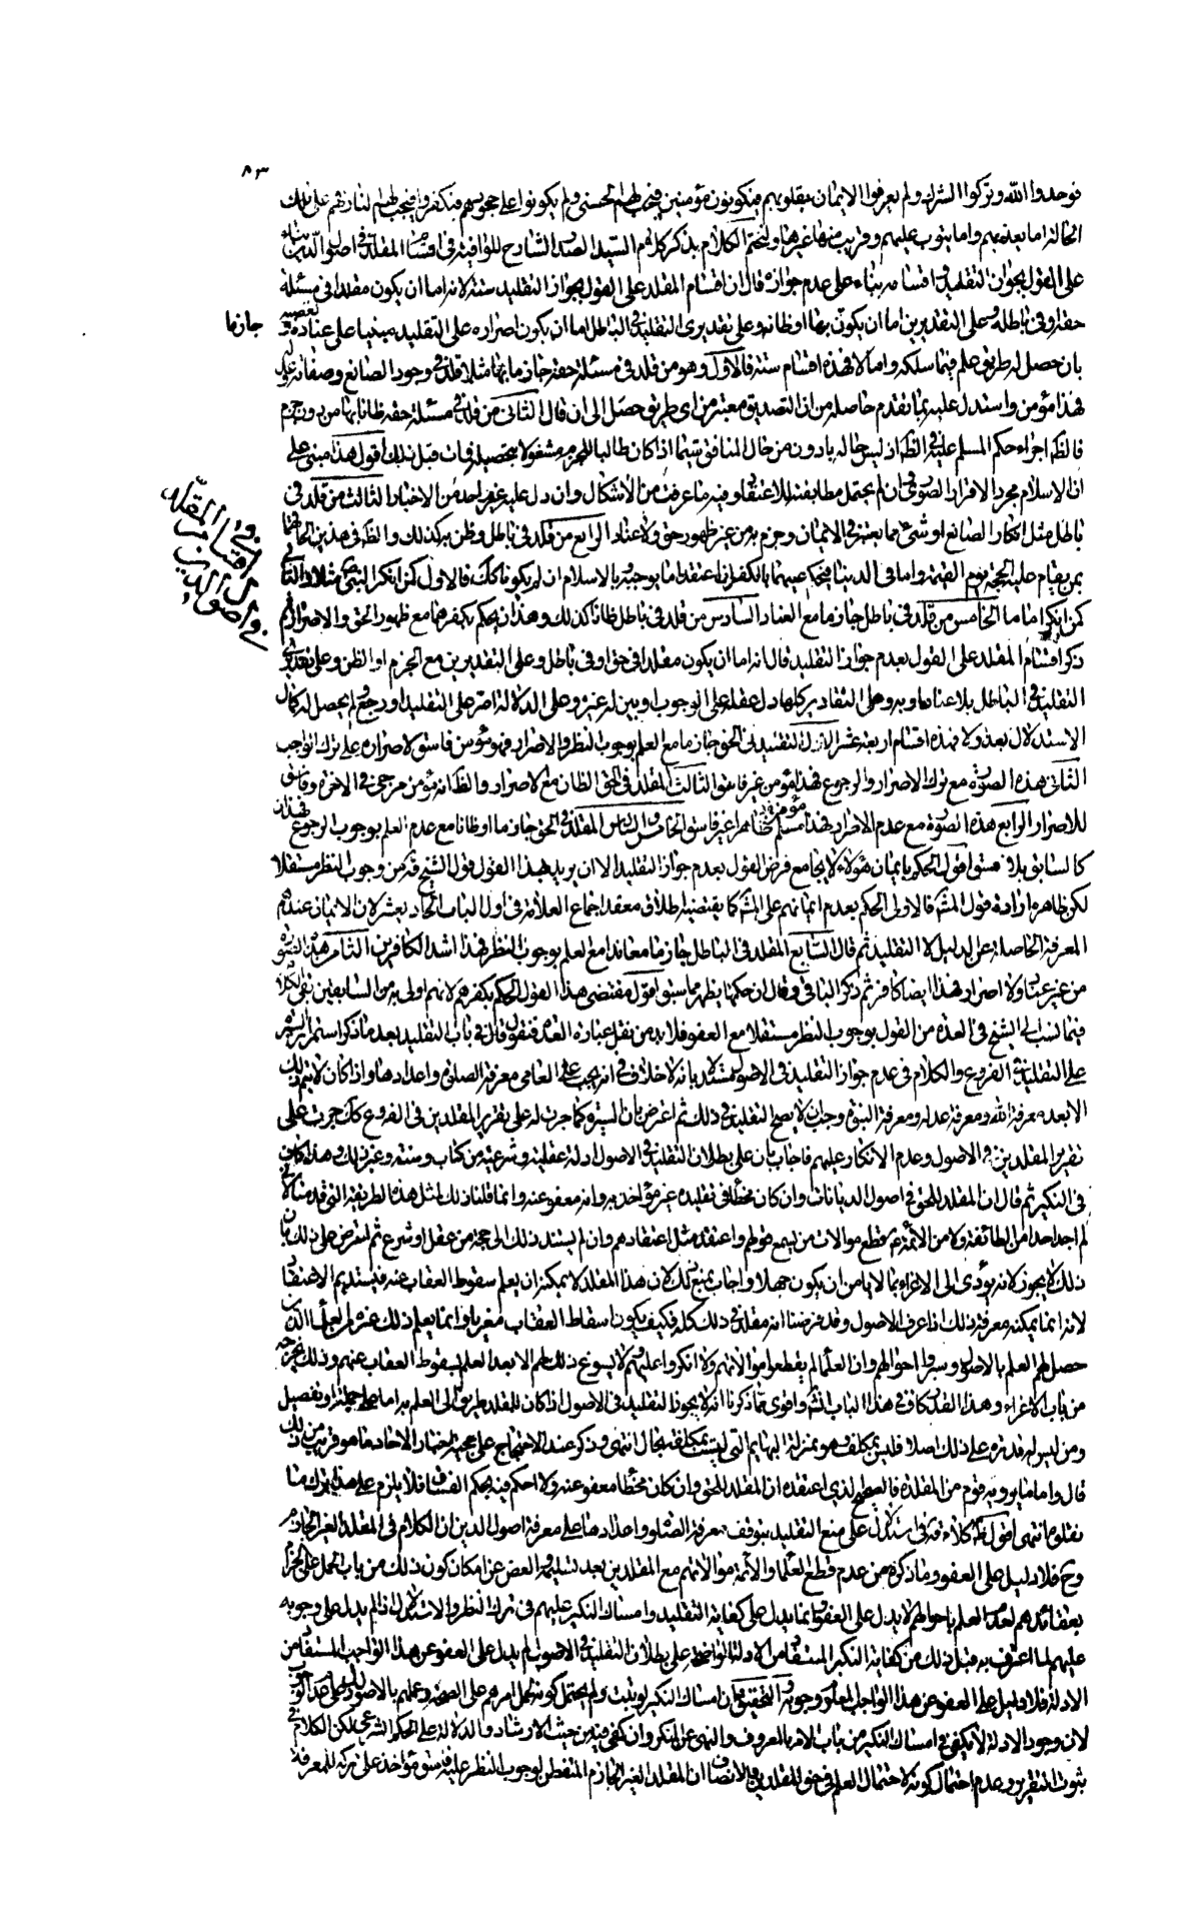 ٨٣
فوحدوا الله وتركوا الشرك ولم يعرفوا الايمان بقلوبهم فيكونون مؤمنين فيجب لهم الجنة ولم يكونوا على جحودهم فيكفروا فيجب لهم النار فهم على تلك
الحالة اما يعذبهم واما يتوب عليهم وقريب منها غيرها ولنختم الكلام بذكر كلام السيد الصدر الشارح للوافية في اقسام المقلد في اصول الدين بناء
على القول بجواز التقليد واقسامه بناء على عدم جوازه قال ان اقسام المقلد على القول بجواز التقليد ستة لانه اما ان يكون مقلدا في مسئلة
حقة او في باطلة وعلى التقديرين اما ان يكون جازما بها او ظانا وعلى تقديرى التقليد في الباطل اما ان يكون اصراره على التقليد مبنيا على عناده وتعصبه
بان حصل له طريق علم فيما سلكه واما لا فهذه اقسام ستة فالاول وهو من قلد في مسئلة حقة جازما بها مثلا قلد في وجود الصانع وصفاته وعدله
فهذا مؤمن واستدل عليه بما تقدم حاصله من ان التصديق معتبر من اى طريق حصل الى ان قال الثانى من قلد في مسئلة حقة ظانا بها من دون جزم
فالظ اجراء حكم المسلم عليه في الظ اذ ليس حاله بادون من حال المنافق سيما اذا كان طالبا للجزم مشغولا بتحصيله فمات قبل ذلك اقول هذا مبنى على
ان الاسلام مجرد الاقرار الصورى وان لم يحتمل مطابقته للاعتقاد وفيه ما عرفت من الاشكال وان دل عليه غير واحد من الاخبار الثالث من قلد في
باطل مثل انكار الصانع او شئ مما يعتبر في الايمان وجزم به من غير ظهور حق ولا عناد الرابع من قلد في باطل وظن به كذلك والظ في هذين الحاقهما
بمن يقام عليه الحجة يوم القيمة واما في الدنيا فيحكم عليهما بالكفر ان اعتقدا ما يوجبه وبالاسلام ان لم يكونا كك فالاول كمن انكر النبى مثلا والثانى
كمن انكر اماما الخامس من قلد في باطل جازما مع العناد السادس من قلد في باطل ظانا كذلك وهذان يحكم بكفرهما مع ظهور الحق والاصرار ثم
ذكر اقسام المقلد على القول بعدم جواز التقليد قال انه اما ان يكون مقلدا في حق او في باطل وعلى التقديرين مع الجزم او الظن وعلى تقديرى
التقليد في الباطل بلا عناد او به وعلى التقادير كلها دل عقله على الوجوب او بين له غيره وعلى الدلالة اصر على التقليد او رجع ولم يحصل له كمال
الاستدلال بعد او لا فهذه اقسام اربعة عشر الاول التقليد في الحق جازما مع العلم بوجوب النظر والاصرار فهو مؤمن فاسق لاصراره على ترك الواجب
الثانى هذه الصورة مع ترك الاصرار والرجوع فهذا مؤمن غير فاسق الثالث المقلد في الحق الظان مع الاصرار والظ انه مؤمن مرجى في الاخرة وفاسق
للاصرار الرابع هذه الصورة مع عدم الاصرار فهذا مسلم ظاهرا غير فاسق الخامس والسادس المقلد في الحق جازما او ظانا مع عدم العلم بوجوب الرجوع فهذان
كالسابق بلا فسق اقول الحكم بايمان هؤلاء لا يجامع فرض القول بعدم جواز التقليد الا ان يريد بهذا القول قول الشيخ قده من وجوب النظر مستقلا
لكن ظاهره ارادة قول المشهور فالاولى الحكم بعدم ايمانهم على المشهور كما يقتضيه اطلاق معقد اجماع العلامة في اول الباب الحاديعشر لان الايمان عندهم
المعرفة الحاصلة عن الدليل لا التقليد ثم قال السابع المقلد في الباطل جازما معاندا مع العلم بوجوب النظر فهذا اشد الكافرين الثامن هذه الصورة
من غير عناد ولا اصرار فهذا ايضا كافر ثم ذكر الباقى وقال ان حكمها يظهر مما سبق اقول مقتضى هذا القول الحكم بكفرهم لانهم اولى به من السابقين بقى الكلام
فيما نسب الى الشيخ في العدة من القول بوجوب النظر مستقلا مع العفو فلا بد من نقل عبارة العدة فنقول قال في باب التقليد بعد ما ذكر استمرار السيرة
على التقليد في الفروع والكلام في عدم جواز التقليد في الاصول مستدلا بانه لا خلاف في انه يجب على العامى معرفة الصلوة واعدادها واذا كان لا يتم ذلك
الا بعد معرفة الله ومعرفة عدله ومعرفة النبوة وجب ان لا يصح التقليد في ذلك ثم اعترض بان السيرة كما جرت له على تقرير المقلدين في الفروع كك جرت على
تقرير المقلدين في الاصول وعدم الانكار عليهم فاجاب بان على بطلان التقليد في الاصول ادلة عقلية وشرعية من كتاب وسنة وغير ذلك وهذا كاف
في النكير ثم قال ان المقلد للحق في اصول الديانات وان كان مخطئا في تقليده غير مؤاخذ به وانه معفو عنه وانما قلنا ذلك لمثل هذه الطريقة التى قدمناها لانى
لم اجد احدا من الطائفة ولا من الائمة ع قطع موالات من يسمع قولهم واعتقد مثل اعتقادهم وان لم يستند ذلك الى حجة من عقل او شرع ثم اعترض على ذلك بان
ذلك لا يجوز لانه يؤدى الى الاغراء بما لا يامن ان يكون جهلا واجاب بمنع ذلك لان هذا المقلد لا يمكنه ان يعلم سقوط العقاب عنه فيستديم الاعتقاد
لانه انما يمكنه معرفة ذلك اذا عرف الاصول وقد فرضنا انه مقلد في ذلك كله فكيف يكون اسقاط العقاب مغريا وانما يعلم ذلك غيره من العلماء الذين
حصل لهم العلم بالاصول وسبروا احوالهم وان العلماء لم يقطعوا موالاتهم ولا انكروا عليهم ولا يسوغ ذلك لهم الا بعد العلم بسقوط العقاب عنهم وذلك يخرجه
من باب الاغراء وهذا القدر كاف في هذا الباب انش واقوى مما ذكرنا انه لا يجوز التقليد في الاصول اذا كان للمقلد طريق الى العلم به اما على جملة او تفصيل
ومن ليس له قدرة على ذلك اصلا فليس بمكلف وهو بمنزلة البهايم التى ليست بمكلفة بحال انتهى وذكر عند الاحتجاج على حجية اخبار الاحاد ما هو قريب من ذلك
قال واما ما يرويه قوم من المقلدة فالصحيح الذى اعتقده ان المقلد للحق وان كان مخطئا معفو عنه ولا احكم فيه بحكم الفساق فلا يلزم على هذا ترك ما
نقلوه انتهى اقول ظ كلامه قده في الاستدلال على منع التقليد بتوقف معرفة الصلوة واعدادها على معرفة اصول الدين ان الكلام في المقلد الغير الجازم
وح فلا دليل على العفو وما ذكره من عدم قطع العلماء والائمة موالاتهم مع المقلدين بعد تسليمه والغض عن امكان كون ذلك من باب الحمل على الجزم
بعقائدهم لعدم العلم باحوالهم لا يدل على العفو وانما يدل على كفاية التقليد وامساك النكير عليهم في ترك النظر والاستدلال اذا لم يدل على وجوبه
عليهم لما اعترف به قبل ذلك من كفاية النكير المستفاد من الادلة الواضحة على بطلان التقليد في الاصول لم يدل على العفو عن هذا الواجب المستفاد من
الادلة فلا دليل على العفو عن هذا الواجب المعلوم وجوبه والتحقيق ان امساك النكير لو ثبت ولم يحتمل كونه لحمل امرهم على الصحة وعلمهم بالاصول دليل على عدم الوجوب
لان وجود الادلة لا يكفى في امساك النكير من باب الامر بالمعروف والنهى عن المنكر وان كفى فيه من حيث الارشاد والدلالة على الحكم الشرعى لكن الكلام في
ثبوت التقرير وعدم احتمال كونه لاحتمال العلم في حق المقلدين فالانصاف ان المقلد الغير الجازم المتفطن لوجوب النظر عليه فاسق مؤاخذ على تركه للمعرفة
جازما
في اقسام المقلد
في اصول الدين